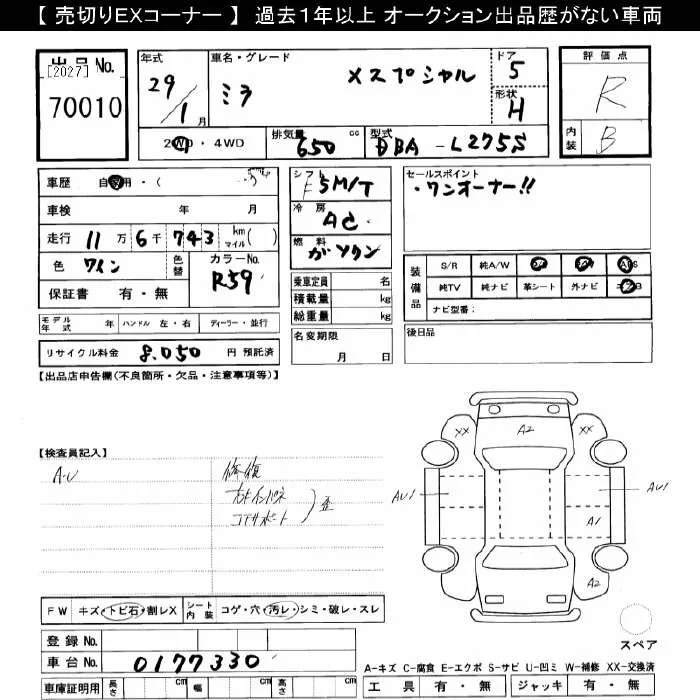 【 売切りEXコーナー 】 過去1年以上 オークション出品歴がない車両
出品No.
[2027]
70010
年式
29/1月
車名・グレード
ミラ Xスペシャル
ドア
5
形状
H
評価点
R
内装
B
2WD・4WD
排気量
650cc
型式
DBA-L275S
車歴 自家用・(
車検 年 月
走行 11万6千743 km マイル( )
色 ワイン
色替
カラーNo.
R59
保証書 有・無
シフト
F5M/T
冷房
AC
燃料
ガソリン
乗車定員 名
積載量 kg
総重量 kg
セールスポイント
・ワンオーナー!!
装備品
S/R 純A/W
純TV 純ナビ 革シート 外ナビ
ナビ型番:
モデル年式 年 ハンドル 左・右 ディーラー・並行
名変期限
月 日
後日品
リサイクル料金 8,050 円 預託済
【出品店申告欄(不良箇所・欠品・注意事項等)】
【検査員記入】
A・U
修復
コアサポート
歪
XX A2 XX
AU1 AU1
A1
A2
FW キズ・トビ石・割レX シート内装 コゲ・穴・汚レ・シミ・破レ・スレ
登録No.
車台No. 0177330
スペア
A-キズ C-腐食 E-エクボ S-サビ U-凹ミ W-補修 XX-交換済
車庫証明用 長さ cm 幅 cm 高さ cm
工具 有・無 ジャッキ 有・無